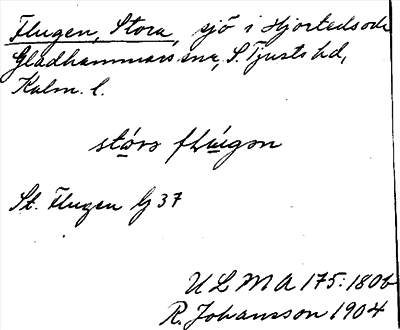 Flugen, Stora, sjö i Hjorteds och
Gladhammars snr, S. Tjusts hd,
Kalm. l.
stóra flúgon
St. Flugen G 37
ULMA 175:180b
R. Johansson 1904